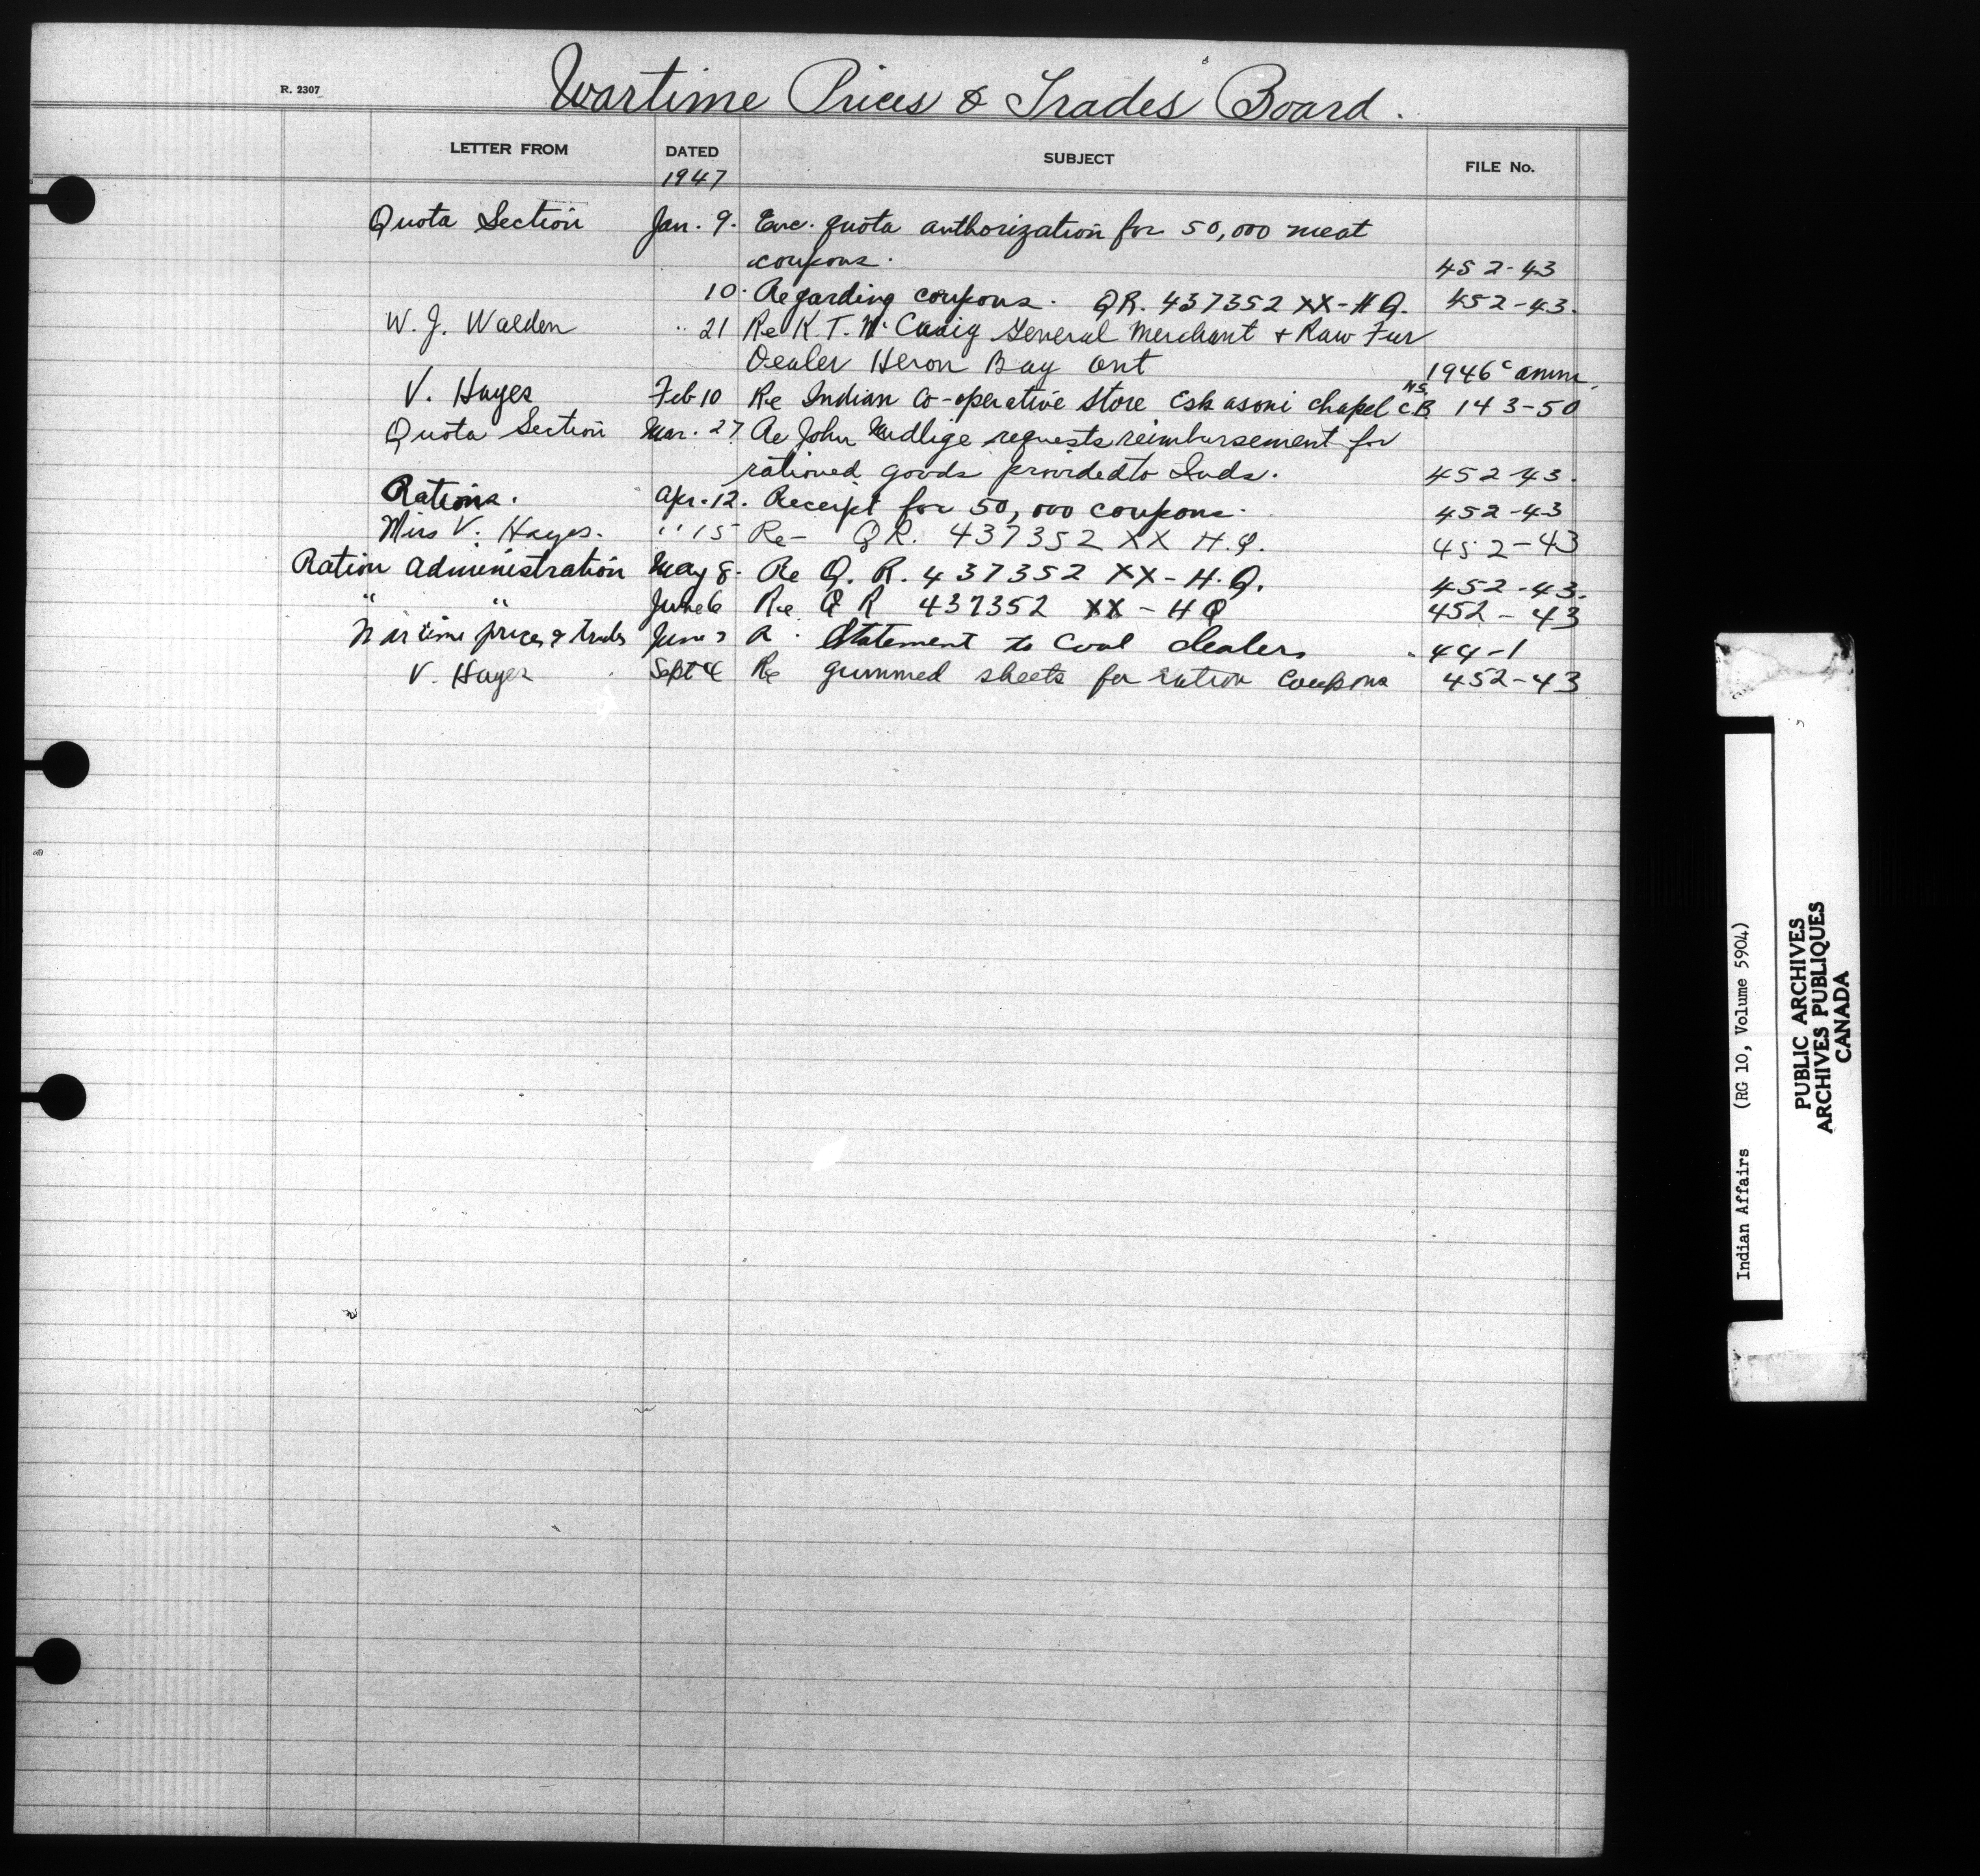 R. 2307
Wartime Prices & Trades Board.
LETTER FROM DATED SUBJECT FILE No.
1947
Quota Section Jan. 9. Enc. quota authorization for 50,000 meat
coupons. 452-43
10. Regarding coupons. QR. 437352 XX-HQ. 452-43.
W. J. Walden " 21 Re K. T. McCuaig General Merchant & Raw Fur
Dealer Heron Bay Ont 1946
V. Hayes Feb 10 Re Indian Co-operative Store Eskasoni Chapel C.B. N.S. 143-50
Quota Section Mar. 27. Re John requests reimbursement for
rationed goods provided to Inds. 452-43.
Rations. Apr. 12. Receipt for 50,000 coupons. 452-43
Miss V. Hayes. " 15 Re- QR. 437352 XX H.Q. 452-43
Ration Administration May 8. Re Q. R. 437352 XX-H.Q. 452-43.
" " June 6 Re Q R 437352 XX-HQ 452-43
Wartime prices & trades June Statement to Coal dealers 44-1
V. Hayes Sept 4 Re gummed sheets for ration coupons 452-43
Indian Affairs (RG 10, Volume 5904)
PUBLIC ARCHIVES
ARCHIVES PUBLIQUES
CANADA